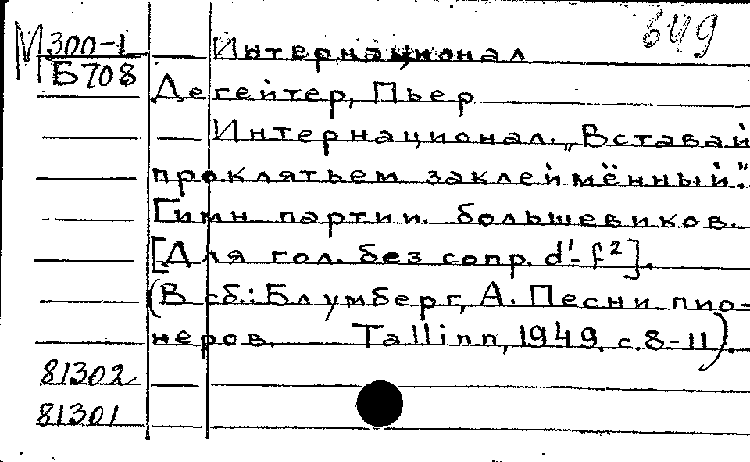 649
М 300-1
Б708
Интернационал
Дегейтер, Пьер
Интернационал. „Вставай
проклятьем заклеймённый."
Гимн партии большевиков.
[Для гол. без сопр. d¹-f²].
(В сб.: Блумберг, А. Песни пио-
неров. Tallinn, 1949. с. 8-11).
81302
81301